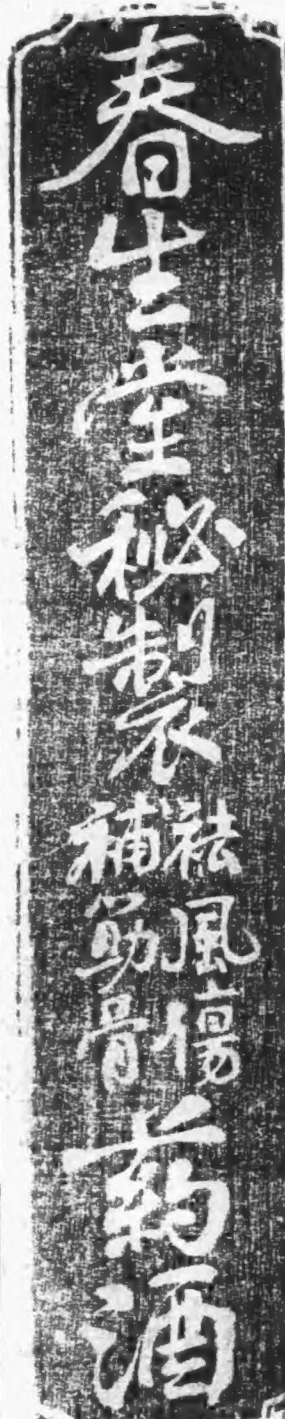 春生堂秘製
祛風傷
補筋骨
药酒